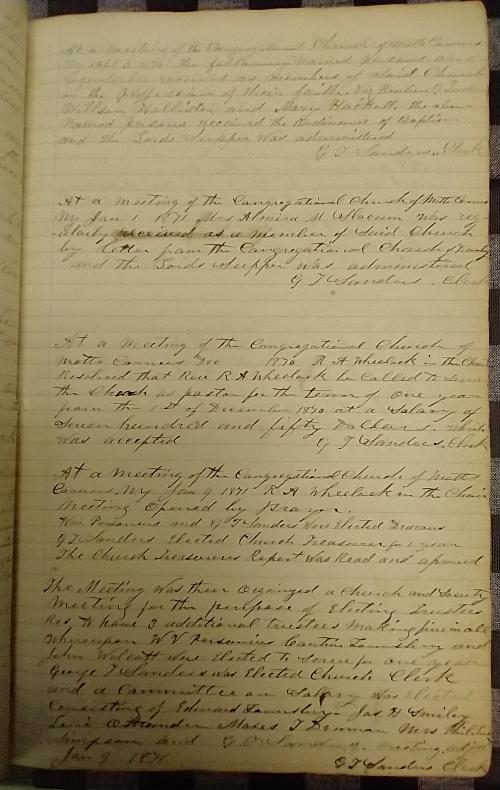 At a meeting of the Congregational Church of Motts Corners
Ny Apl 3 1870 The following named persons were
regularly received as members of Said Church
on the profession of their faith Viz Reuben
William Hollister and Mary the above
Named persons received the Ordinance of Baptism
and the Lords Supper was administered
G T Sanders. Clerk
At a Meeting of the Congregational Church of Motts Corners
Ny Jan 1 1871 Mrs Almira M Slocum was reg-
-ularly received as a member of Said Church
by letter from the Congregational Church of
and the Lords Supper was administered
G T Sanders. Clerk
At a Meeting of the Congregational Church of
Motts Corners Dec 1870 R A Wheelock in the Chair
Resolved that Rev R A Wheelock be Called to Serve
the Church as pastor for the term of one year
from the 1st of December 1870 at a Salary of
Seven hundred and fifty Dollars. which
was accepted G T Sanders. Clerk
At a Meeting of the Congregational Church of Motts
Corners. Ny Jan 9 1871 R A Wheelock in the Chair
Meeting Opened by Prayer.
Wm Personius and G T Sanders were Elected Deacons
G T Sanders Elected Church Treasurer for 1 year
The Church Treasurers Report Was Read and
The Meeting Was then Organized a Church and Society
Meeting for the purpose of Electing Trustees
Res. to have 3 additional trustees Making five in all
Whereupon W V Personius Lounsbery and
John Wolcott were Elected to Serve for one year
George T Sanders was Elected Church Clerk
and a Committee on Salary was Elected
Consisting of Edward Lounsbery Jas H Smiley
Levi Ostrander Moses T Denman Mrs
Simpson and G meeting
Jan 9 1871 G T Sanders Clerk